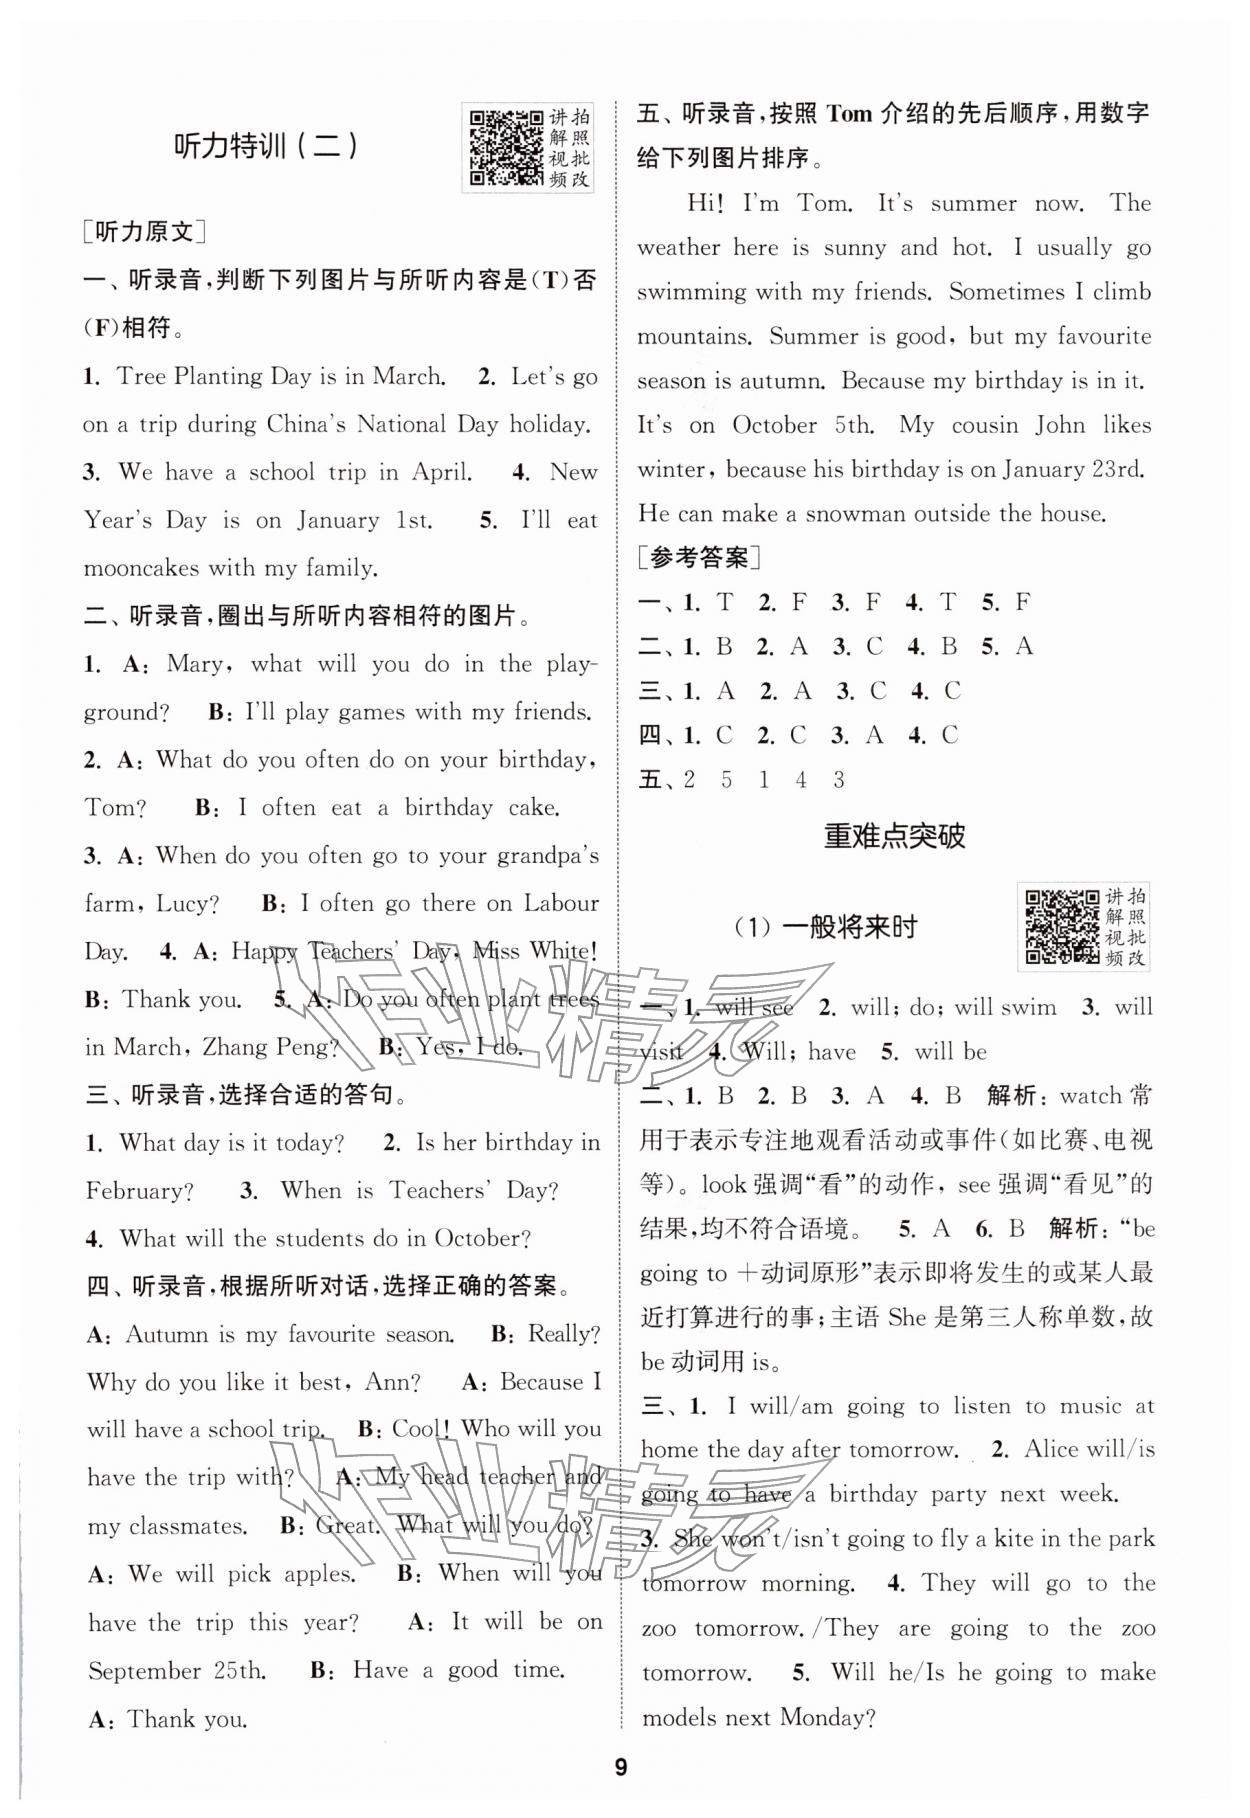 听力特训(二)
讲拍
解照
视批
频改
[听力原文]
一、听录音,判断下列图片与所听内容是(T)否
(F)相符。
1. Tree Planting Day is in March. 2. Let's go
on a trip during China's National Day holiday.
3. We have a school trip in April. 4. New
Year's Day is on January 1st. 5. I'll eat
mooncakes with my family.
二、听录音,圈出与所听内容相符的图片。
1. A: Mary, what will you do in the play-
ground? B: I'll play games with my friends.
2. A: What do you often do on your birthday,
Tom? B: I often eat a birthday cake.
3. A: When do you often go to your grandpa's
farm, Lucy? B: I often go there on Labour
Day. 4. A: Happy Teachers' Day, Miss White!
B: Thank you. 5. A: Do you often plant trees
in March, Zhang Peng? B: Yes, I do.
三、听录音,选择合适的答句。
1. What day is it today? 2. Is her birthday in
February? 3. When is Teachers' Day?
4. What will the students do in October?
四、听录音,根据所听对话,选择正确的答案。
A: Autumn is my favourite season. B: Really?
Why do you like it best, Ann? A: Because I
will have a school trip. B: Cool! Who will you
have the trip with? A: My head teacher and
my classmates. B: Great. What will you do?
A: We will pick apples. B: When will you
have the trip this year? A: It will be on
September 25th. B: Have a good time.
A: Thank you.
五、听录音,按照 Tom 介绍的先后顺序,用数字
给下列图片排序。
Hi! I'm Tom. It's summer now. The
weather here is sunny and hot. I usually go
swimming with my friends. Sometimes I climb
mountains. Summer is good, but my favourite
season is autumn. Because my birthday is in it.
It's on October 5th. My cousin John likes
winter, because his birthday is on January 23rd.
He can make a snowman outside the house.
[参考答案]
一、1. T 2. F 3. F 4. T 5. F
二、1. B 2. A 3. C 4. B 5. A
三、1. A 2. A 3. C 4. C
四、1. C 2. C 3. A 4. C
五、2 5 1 4 3
重难点突破
(1) 一般将来时
讲拍
解照
视批
频改
一、1. will see 2. will; do; will swim 3. will
visit 4. Will; have 5. will be
二、1. B 2. B 3. A 4. B 解析: watch 常
用于表示专注地观看活动或事件(如比赛、电视
等)。look 强调“看”的动作, see 强调“看见”的
结果,均不符合语境。 5. A 6. B 解析: “be
going to +动词原形”表示即将发生的或某人最
近打算进行的事;主语 She 是第三人称单数,故
be 动词用 is。
三、1. I will/am going to listen to music at
home the day after tomorrow. 2. Alice will/is
going to have a birthday party next week.
3. She won't/isn't going to fly a kite in the park
tomorrow morning. 4. They will go to the
zoo tomorrow. /They are going to the zoo
tomorrow. 5. Will he/Is he going to make
models next Monday?
作业精灵
作业精灵
9